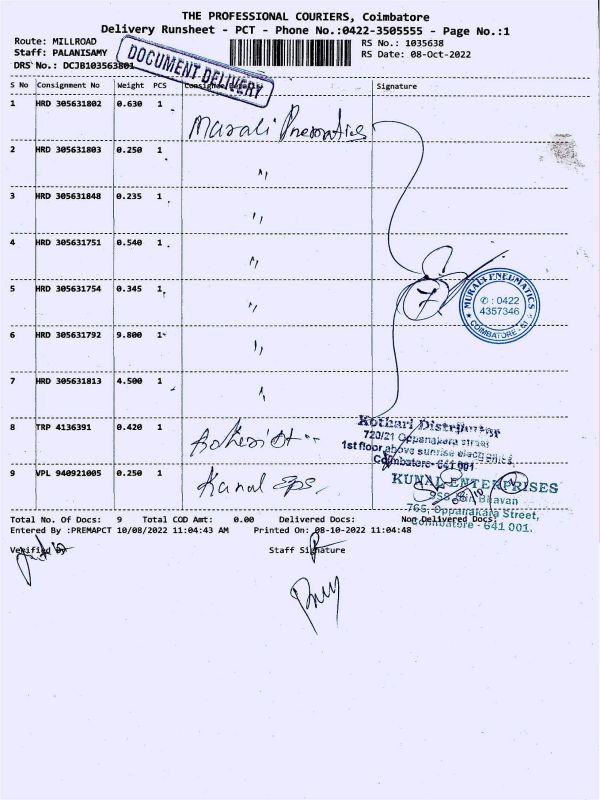 THE PROFESSIONAL COURIERS, Coimbatore
Delivery Runsheet - PCT - Phone No.:0422-3505555 - Page No.:1
Route: MILLROAD
RS No.: 1035638
Staff: PALANISAMY
RS Date: 08-Oct-2022
DRS No.: DCJB103563801
DOCUMENT DELIVERY
S No Consignment No Weight PCS Signature
1 HRD 305631802 0.630 1 Murali Pneumatics
2 HRD 305631803 0.250 1 "
3 HRD 305631848 0.235 1 "
4 HRD 305631751 0.540 1 "
5 HRD 305631754 0.345 1 " 7
MURALI PNEUMATICS
✆ : 0422
4357346
COIMBATORE - 61
6 HRD 305631792 9.800 1 "
7 HRD 305631813 4.500 1 "
8 TRP 4136391 0.420 1
Kothari Distributor
720/21 Oppanakara street
1st floor above sunrise electronics,
Coimbatore- 641 001
9 VPL 940921005 0.250 1 Kunal
KUNAL ENTERPRISES
Bhavan
765, Oppanakara Street,
Coimbatore - 641 001.
Total No. Of Docs: 9 Total COD Amt: 0.00 Delivered Docs: Not Delivered Docs:
Entered By :PREMAPCT 10/08/2022 11:04:43 AM Printed On: 08-10-2022 11:04:48
Verified By
Staff Signature